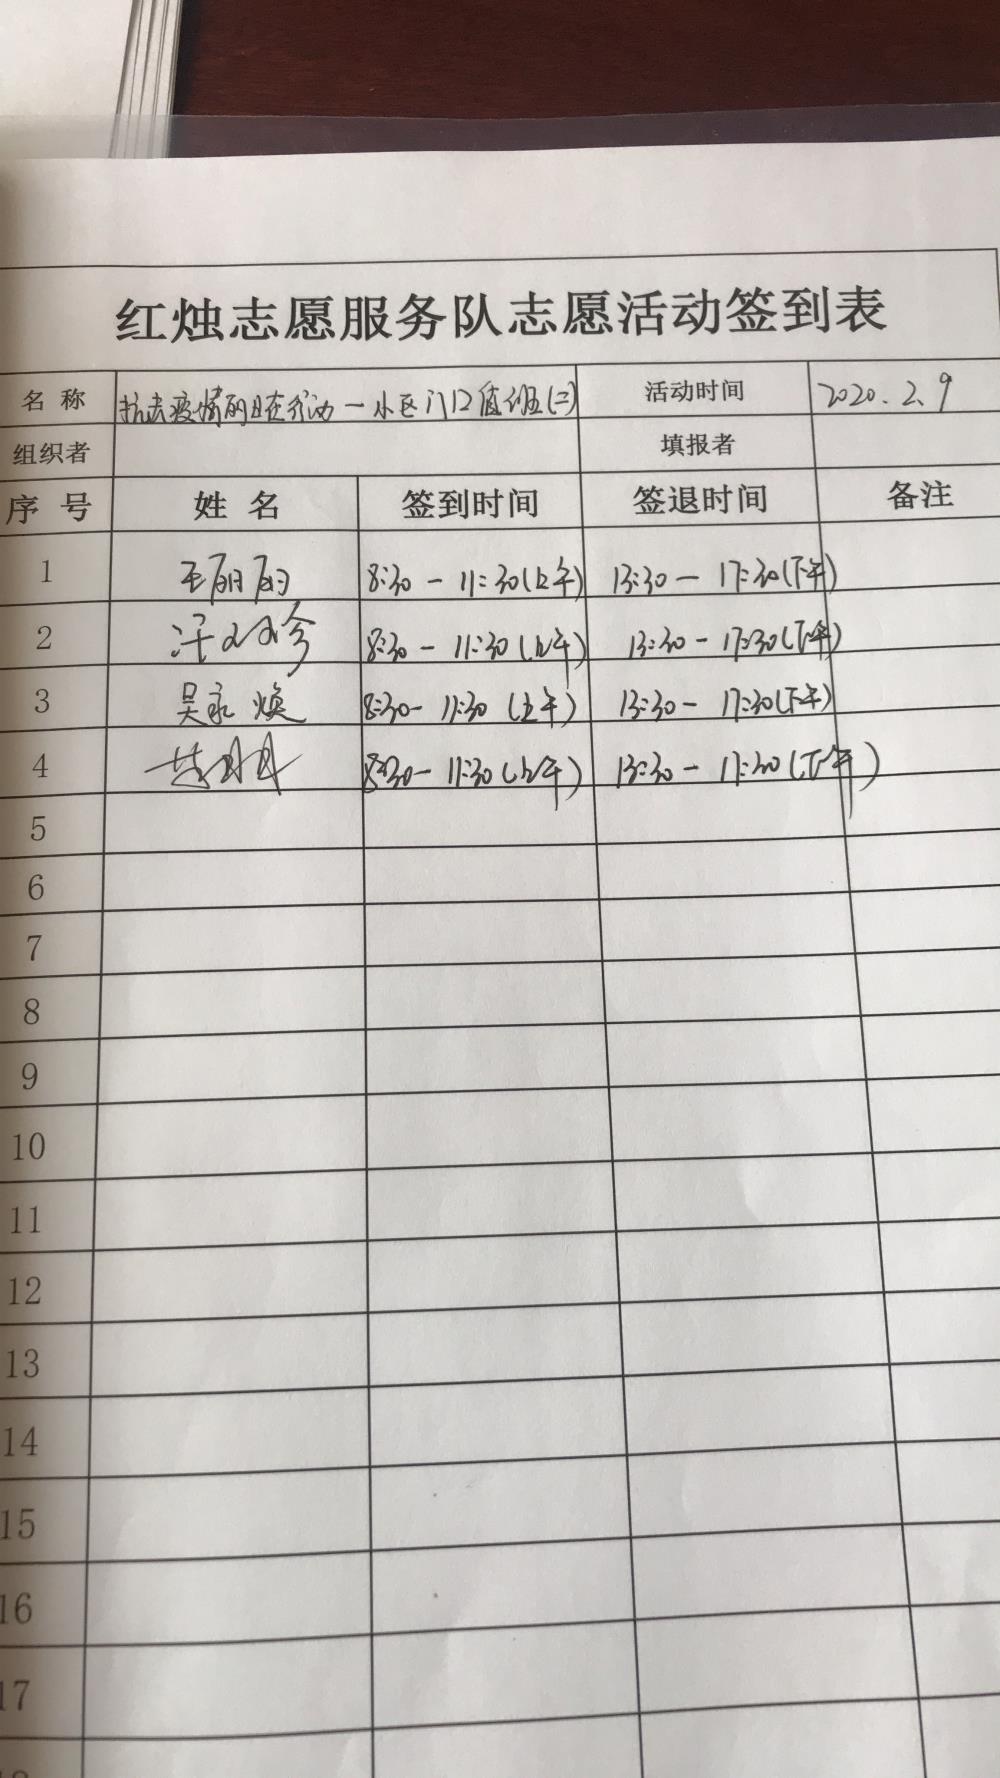 红烛志愿服务队志愿活动签到表
名称 抗击疫情 在行动－小区门口值班(二) 活动时间 2020.2.9
组织者 填报者
序号 姓名 签到时间 签退时间 备注
1 王丽丽 8:30－11:30(上午) 13:30－17:30(下午)
2 汗 8:30－11:30(上午) 13:30－17:30(下午)
3 吴永焕 8:30－11:30(上午) 13:30－17:30(下午)
4 8:30－11:30(上午) 13:30－17:30(下午)
5
6
7
8
9
10
11
12
13
14
15
16
17